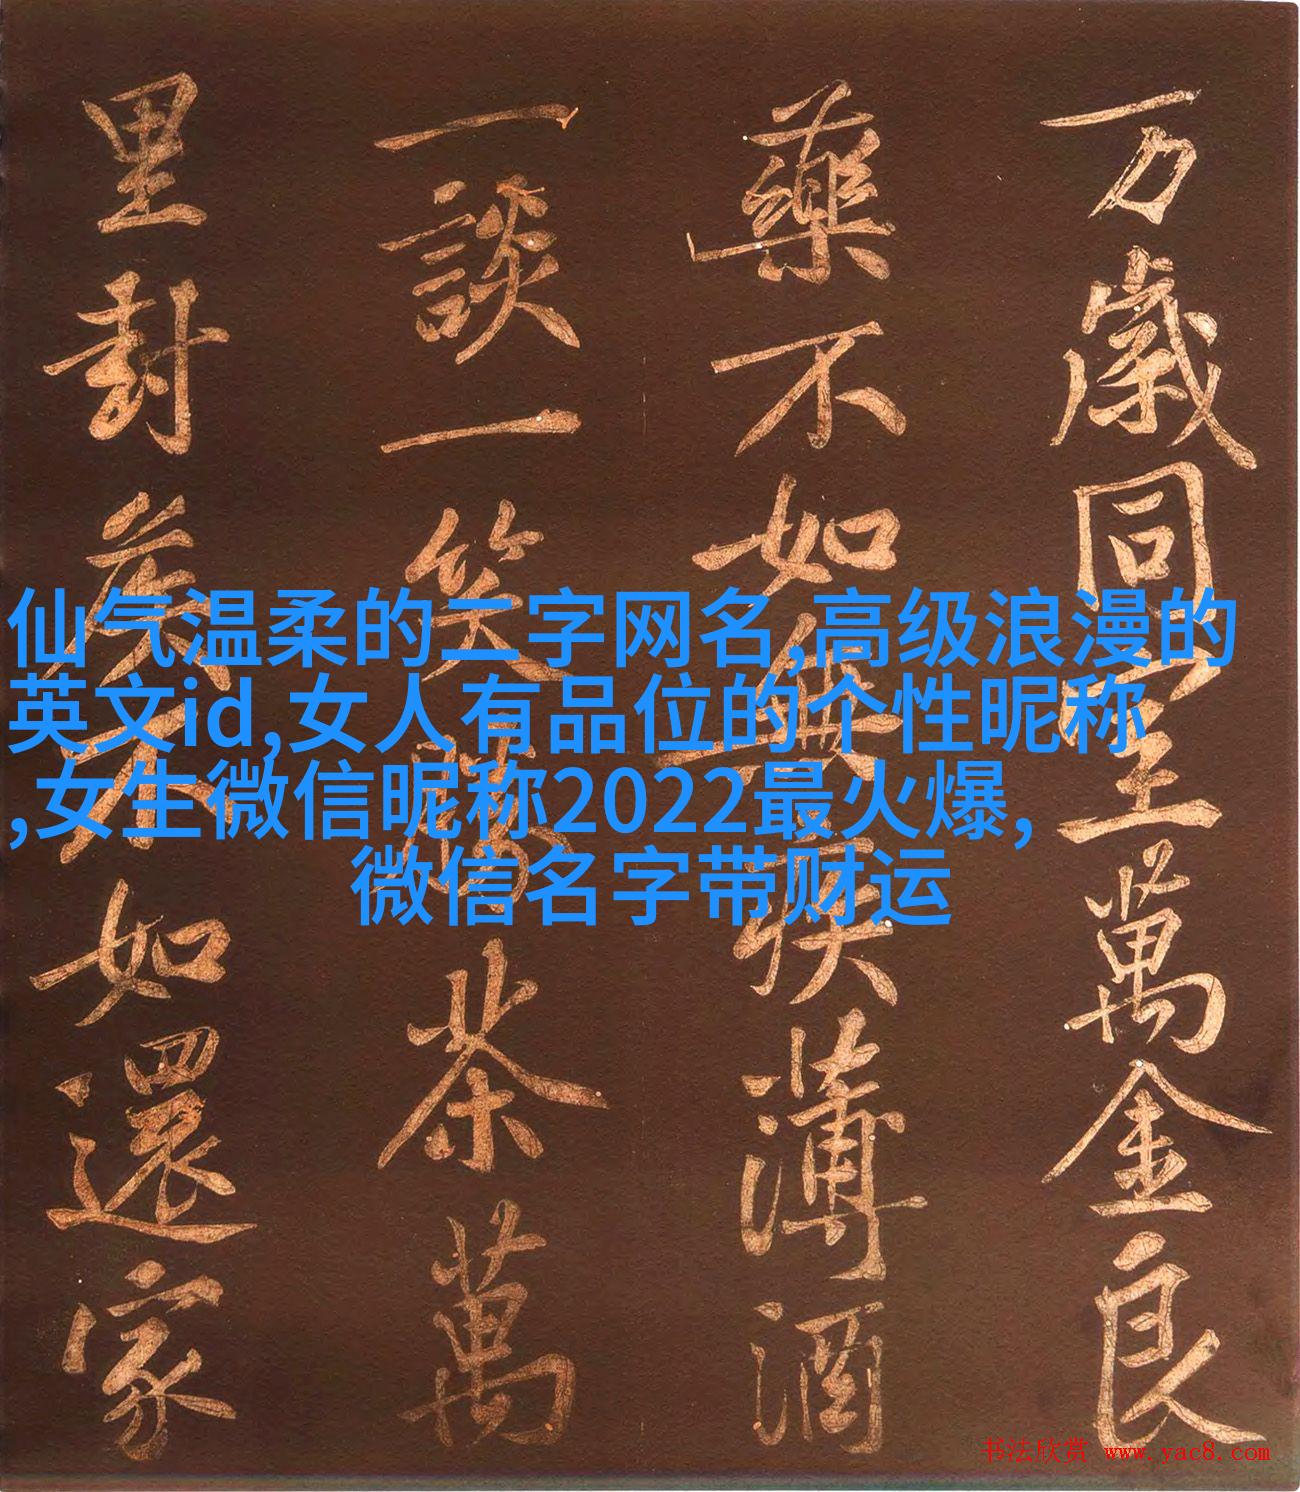 万歲同室萬金良
藥不如無疾薄酒
一談一笑勝茶萬
里封侯不如還家
仙气温柔的二字网名,高级浪漫的
英文id,女人有品位的个性昵称
,女生微信昵称2022最火爆,
微信名字带财运
书法欣赏 www.yac8.com